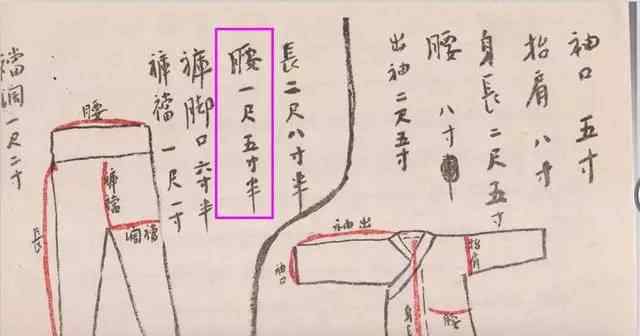 袖口 五寸
抬肩 八寸
身長 二尺五寸
腰 八寸
出袖 二尺五寸
長 二尺八寸半
腰 一尺五寸半
褲脚口 六寸半
褲襠 一尺一寸
襠濶 一尺二寸
腰
褲襠
濶襠
長
袖出
袖口
抬肩
腰
身長